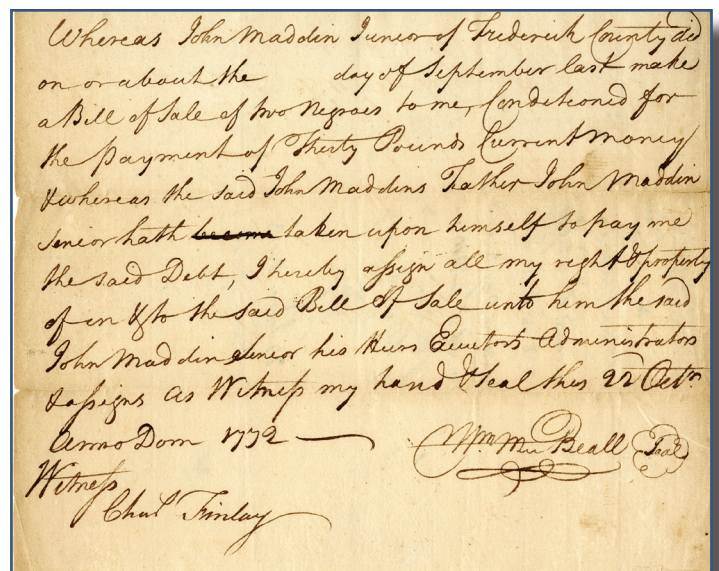 Whereas John Maddin Junior of Frederick County did
on or about the day of September last make
a Bill of Sale of two Negroes to me, Conditioned for
the payment of Thirty Pounds Current money
& whereas the said John Maddins Father John Maddin
senior hath become taken upon himself to pay me
the said Debt, I hereby assign all my right & property
of in & to the said Bill of Sale unto him the said
John Maddin Senior his Heirs Executors Administrators
& assigns as Witness my hand & Seal this 22 Octr
Anno Dom 1772
Wm Beall Seal
Witness
Chas Finlay